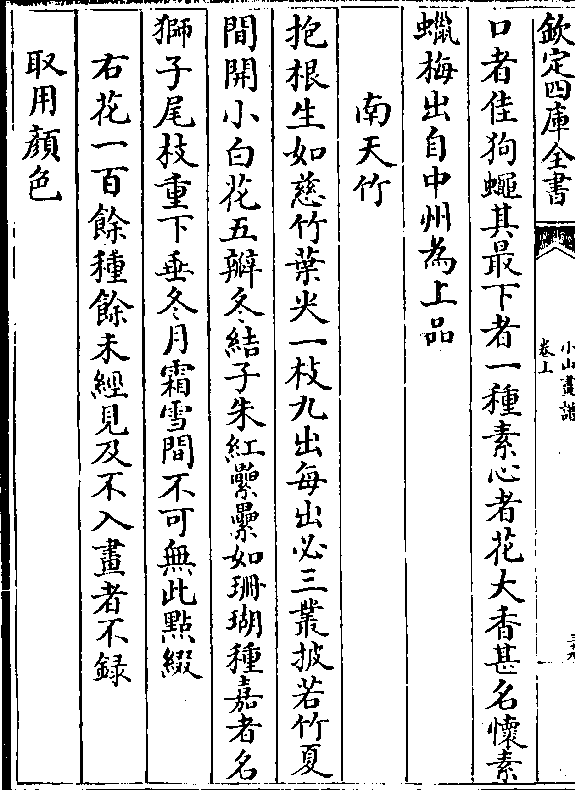 欽定四庫全書
小山畫譜
卷上
口者佳狗蠅其最下者一種素心者花大香甚名懷素
蠟梅出自中州為上品
南天竹
抱根生如慈竹葉尖一枝九出每出必三叢披若竹夏
間開小白花五瓣冬結子朱紅纍纍如珊瑚種嘉者名
獅子尾枝重下垂冬月霜雪間不可無此點綴
右花一百餘種餘未經見及不入畫者不録
取用顔色